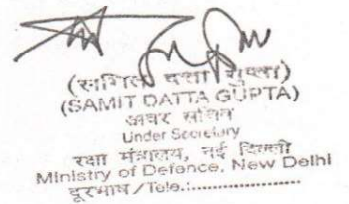 (SAMIT DATTA GUPTA)
अवर सचिव
Under Secretary
रक्षा मंत्रालय, नई दिल्ली
Ministry of Defence, New Delhi
दूरभाष/Tele.:..................